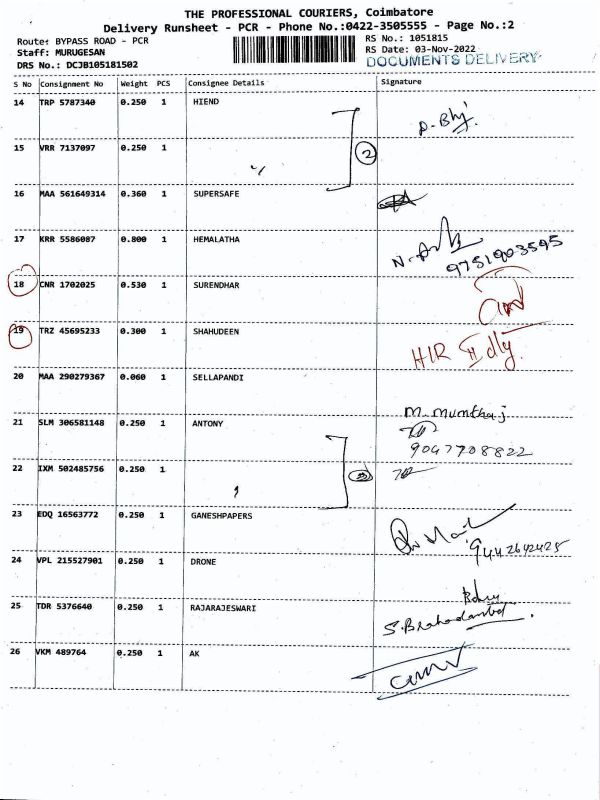 THE PROFESSIONAL COURIERS, Coimbatore
Delivery Runsheet - PCR - Phone No.:0422-3505555 - Page No.:2
Route: BYPASS ROAD - PCR
Staff: MURUGESAN
DRS No.: DCJB105181502
RS No.: 1051815
RS Date: 03-Nov-2022
DOCUMENTS DELIVERY
S No Consignment No Weight PCS Consignee Details Signature
14 TRP 5787340 0.250 1 HIEND
15 VRR 7137097 0.250 1
2
16 MAA 561649314 0.360 1 SUPERSAFE
17 KRR 5586087 0.800 1 HEMALATHA
9751903595
18 CNR 1702025 0.530 1 SURENDHAR
19 TRZ 45695233 0.300 1 SHAHUDEEN
20 MAA 290279367 0.060 1 SELLAPANDI
M. Mumthaj
21 SLM 306581148 0.250 1 ANTONY
9047708822
22 IXM 502485756 0.250 1
23 EDQ 16563772 0.250 1 GANESHPAPERS
9442642425
24 VPL 215527901 0.250 1 DRONE
25 TDR 5376640 0.250 1 RAJARAJESWARI
26 VKM 489764 0.250 1 AK